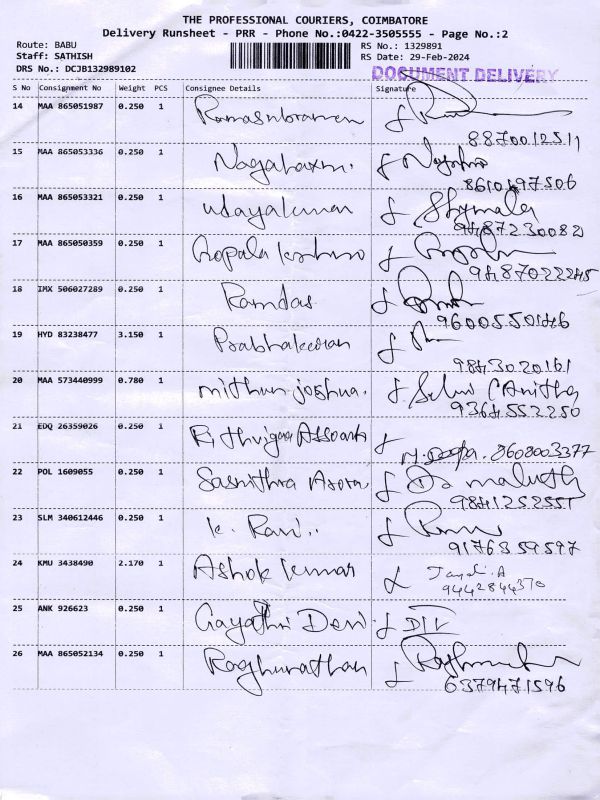 THE PROFESSIONAL COURIERS, COIMBATORE
Delivery Runsheet - PRR - Phone No.:0422-3505555 - Page No.:2
Route: BABU
Staff: SATHISH
DRS No.: DCJB132989102
RS No.: 1329891
RS Date: 29-Feb-2024
DOCUMENT DELIVERY
S No Consignment No Weight PCS Consignee Details Signature
14 MAA 865051987 0.250 1
8870012511
15 MAA 865053336 0.250 1
16 MAA 865053321 0.250 1 udayakumar Shymala
9487230082
17 MAA 865050359 0.250 1 Gopala
9487022245
18 IMX 506027289 0.250 1 Ramdas
9600550146
19 HYD 83238477 3.150 1 Prabhakaran
9843020161
20 MAA 573440999 0.780 1 mithun joshua. Selvi (Anitha
9364552250
21 EDQ 26359026 0.250 1
8608003377
22 POL 1609055 0.250 1
9841252551
23 SLM 340612446 0.250 1 K. Ravi..
9176359597
24 KMU 3438490 2.170 1 Ashok kumar
9442844370
25 ANK 926623 0.250 1 Gayathri Devi
26 MAA 865052134 0.250 1 Raghunathan
6379471596